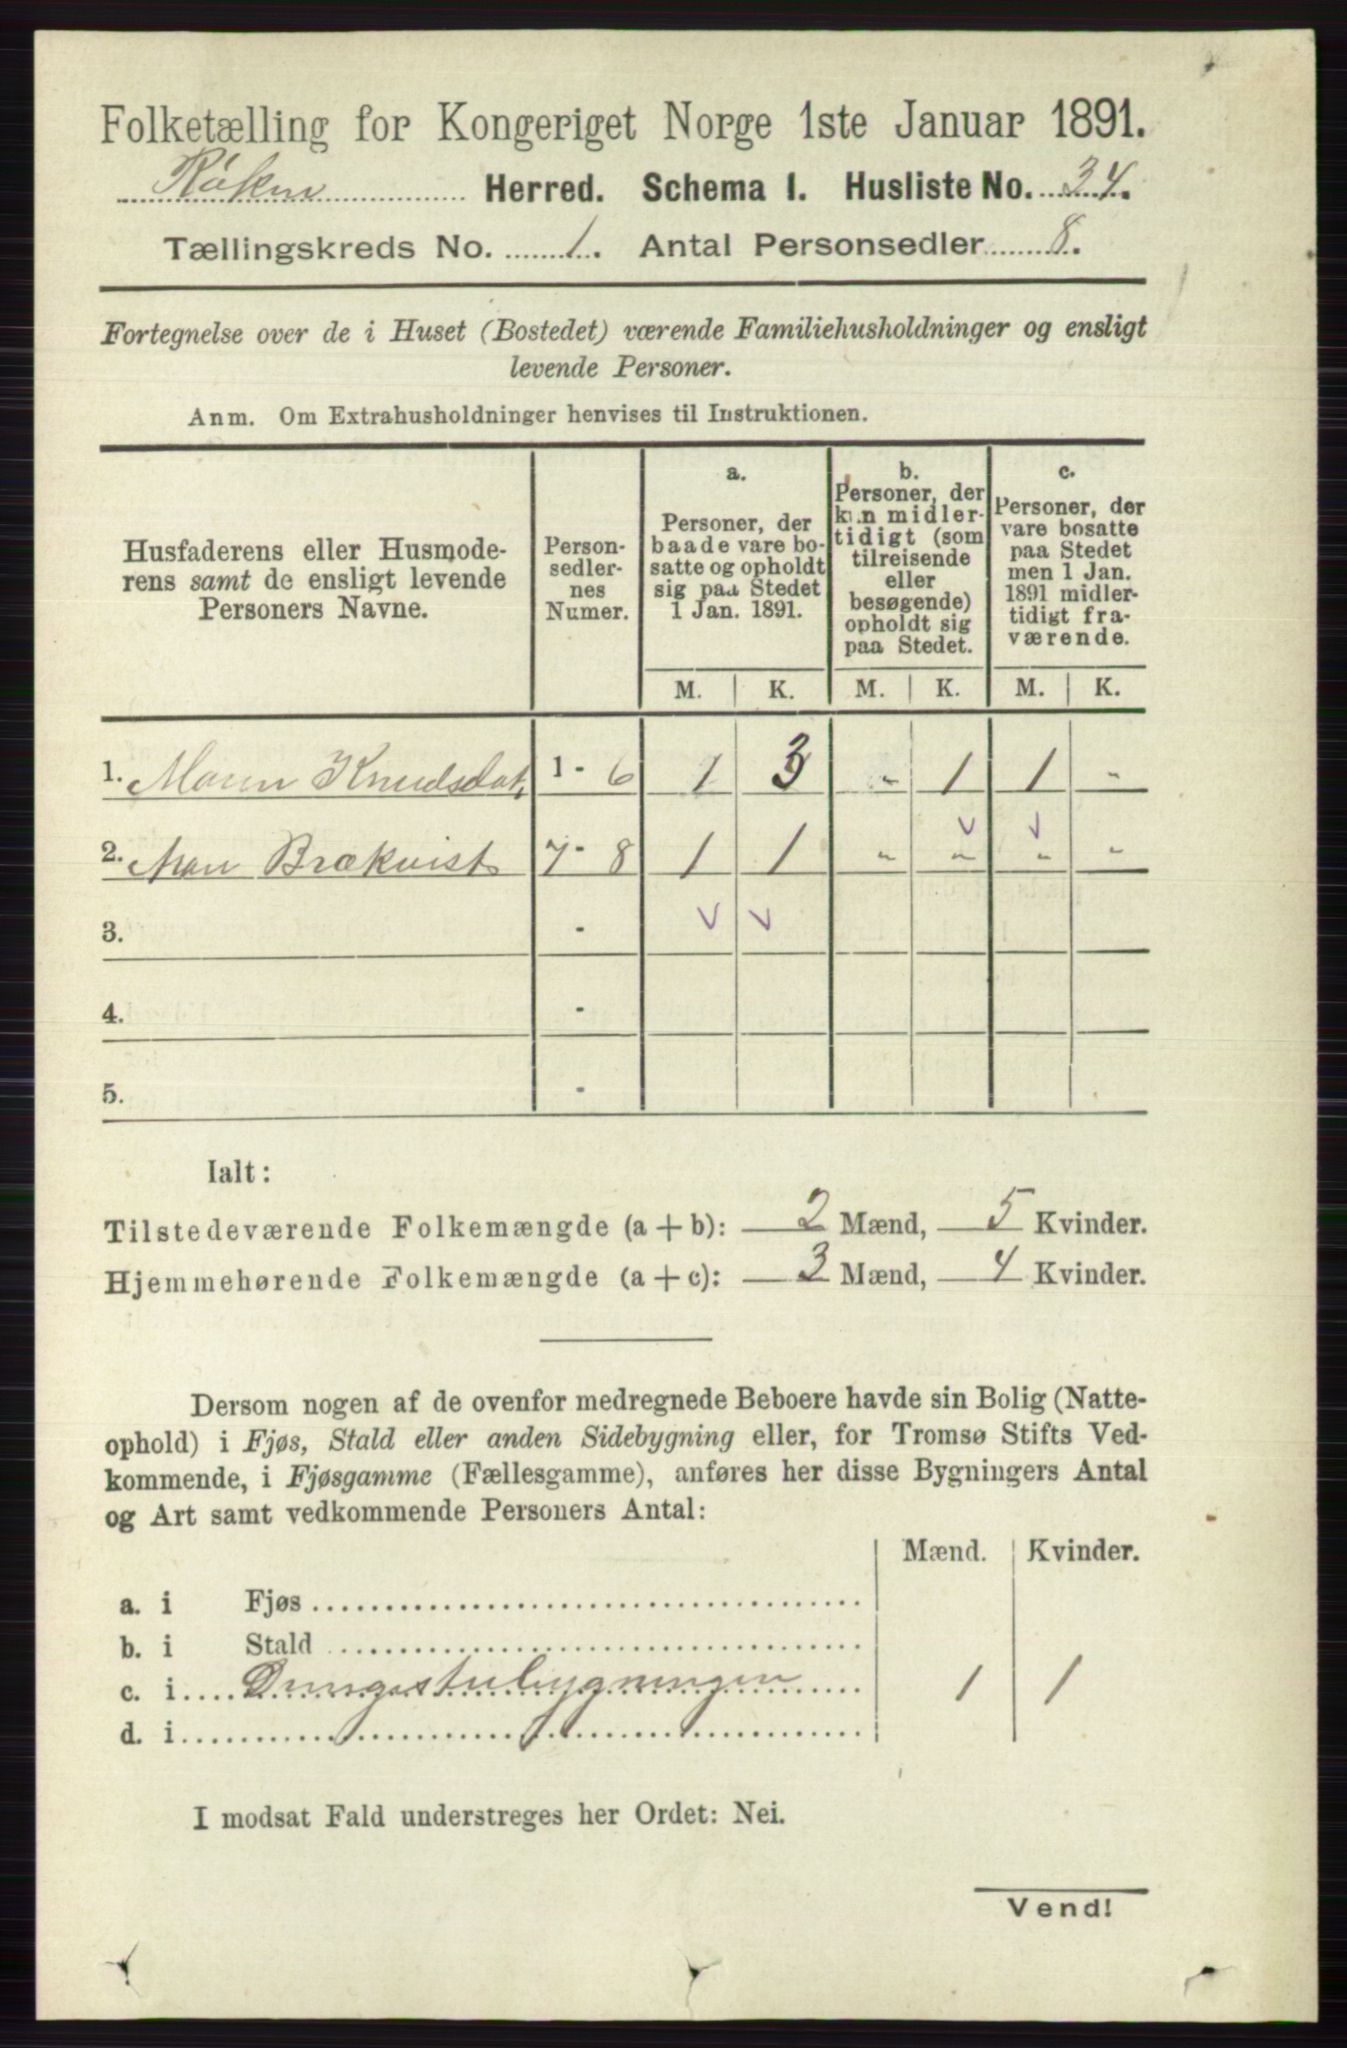 Folketælling for Kongeriget Norge 1ste Januar 1891.
Røken Herred. Schema I. Husliste No. 34.
Tællingskreds No. 1. Antal Personsedler 8.
Fortegnelse over de i Huset (Bostedet) værende Familiehusholdninger og ensligt
levende Personer.
Anm. Om Extrahusholdninger henvises til Instruktionen.
Husfaderens eller Husmode-
rens samt de ensligt levende
Personers Navne.
Person-
sedler-
nes
Numer.
a.
Personer, der
baade vare bo-
satte og opholdt
sig paa Stedet
1 Jan. 1891.
b.
Personer, der
kun midler-
tidigt (som
tilreisende
eller
besøgende)
opholdt sig
paa Stedet.
c.
Personer, der
vare bosatte
paa Stedet
men 1 Jan.
1891 midler-
tidigt fra-
værende.
M. K. M. K. M. K.
1. Maren Knudsdat. 1 - 6 1 3 - 1 1 -
2. Brækvist 7 - 8 1 1 - - - -
3. -
4. -
5. -
Ialt:
Tilstedeværende Folkemængde (a + b): 2 Mænd, 5 Kvinder.
Hjemmehørende Folkemængde (a + c): 3 Mænd, 4 Kvinder.
Dersom nogen af de ovenfor medregnede Beboere havde sin Bolig (Natte-
ophold) i Fjøs, Stald eller anden Sidebygning eller, for Tromsø Stifts Ved-
kommende, i Fjøsgamme (Fællesgamme), anføres her disse Bygningers Antal
og Art samt vedkommende Personers Antal:
Mænd. Kvinder.
a. i Fjøs
b. i Stald
c. i Drengestubygningen 1 1
d. i
I modsat Fald understreges her Ordet: Nei.
Vend!